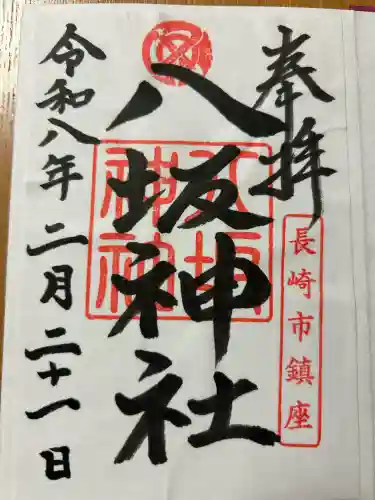 奉拝
長崎市鎮座
八坂神社
八坂神社
令和八年二月二十一日